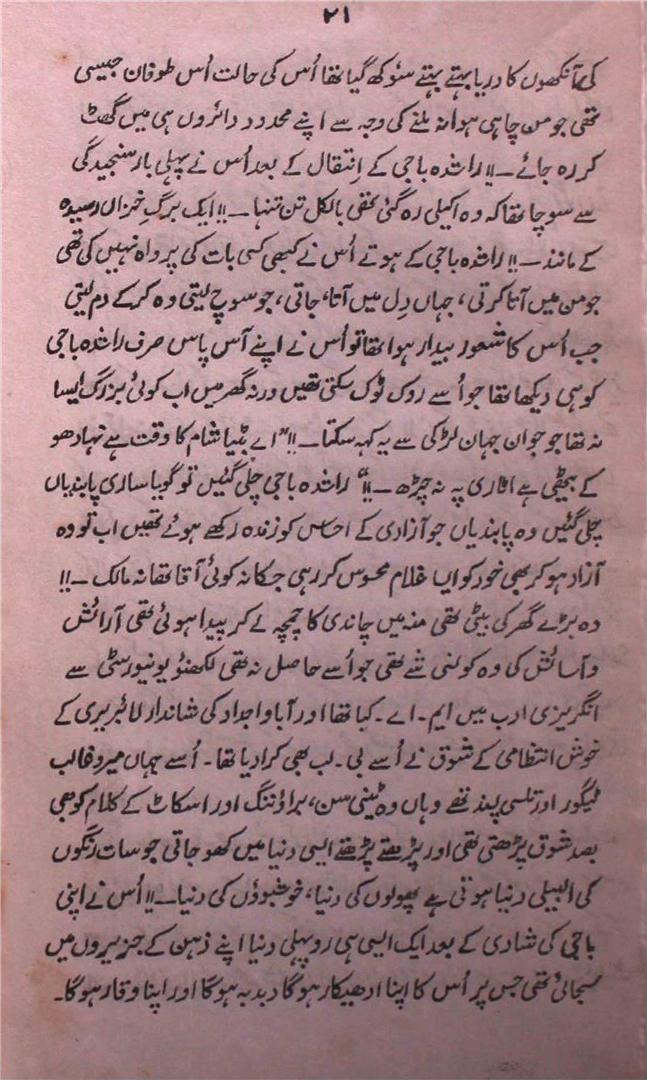 ۲۱
کی آنکھوں کا دریا بہتے بہتے سوکھ گیا تھا اُس کی حالت اُس طوفان جیسی
تھی جو من چاہی ہوا نہ ملنے کی وجہ سے اپنے محدود دائروں ہی میں گھٹ
کر رہ جائے ۔!! راشدہ باجی کے اِنتقال کے بعد اُس نے پہلی بار سنجیدگی
سے سوچا تھا کہ وہ اکیلی رہ گئی تھی بالکل تن تنہا ۔!! ایک برگِ خزاں رسیدہ
کے مانند ۔!! راشدہ باجی کے ہوتے اُس نے کبھی کسی بات کی پرواہ نہیں کی تھی
جو من میں آتا کرتی ، جہاں دِل میں آتا، جاتی ، جو سوچ لیتی وہ کر کے دم لیتی
جب اُس کا شعور بیدار ہوا تھا تو اُس نے اپنے آس پاس صرف راشدہ باجی
کو ہی دیکھا تھا جو اُسے روک ٹوک سکتی تھیں ورنہ گھر میں اب کوئی بزرگ ایسا
نہ تھا جو جوان جہان لڑکی سے یہ کہہ سکتا ۔!! "اے بٹیا شام کا وقت ہے نہا دھو
کے بیٹھی ہے اٹاری پہ نہ چڑھ ۔!!" راشدہ باجی چلی گئیں تو گویا ساری پابندیاں
چلی گئیں وہ پابندیاں جو آزادی کے احساس کو زندہ رکھے ہوئے تھیں اب تو وہ
آزاد ہو کر بھی خود کو ایسا غلام محسوس کر رہی جسکا نہ کوئی آقا تھا نہ مالک ۔!!
وہ بڑے گھر کی بیٹی تھی منہ میں چاندی کا چمچہ لے کر پیدا ہوئی تھی آرائش
و آسائش کی وہ کونسی شے تھی جو اُسے حاصل نہ تھی لکھنؤ یونیورسٹی سے
انگریزی ادب میں ایم ۔ اے ۔ کیا تھا اور آبا و اجداد کی شاندار لائبریری کے
خوش انتظامی کے شوق نے اُسے بی ۔ لب بھی کرا دیا تھا ۔ اُسے جہاں میر و غالب
ٹیگور اور تلسی پسند تھے وہاں وہ ٹینی سن ، براؤننگ اور اسکاٹ کے کلام کو بھی
بصد شوق پڑھتی تھی اور پڑھتے پڑھتے ایسی دنیا میں کھو جاتی جو سات رنگوں
کی البیلی دنیا ہوتی ہے پھولوں کی دنیا ، خوشبوؤں کی دنیا ۔!! اُس نے اپنی
باجی کی شادی کے بعد ایک ایسی ہی روپہلی دنیا اپنے ذہن کے جزیروں میں
سجائی تھی جس پر اُس کا اپنا ادھیکار ہوگا دبدبہ ہوگا اور اپنا وقار ہوگا ۔